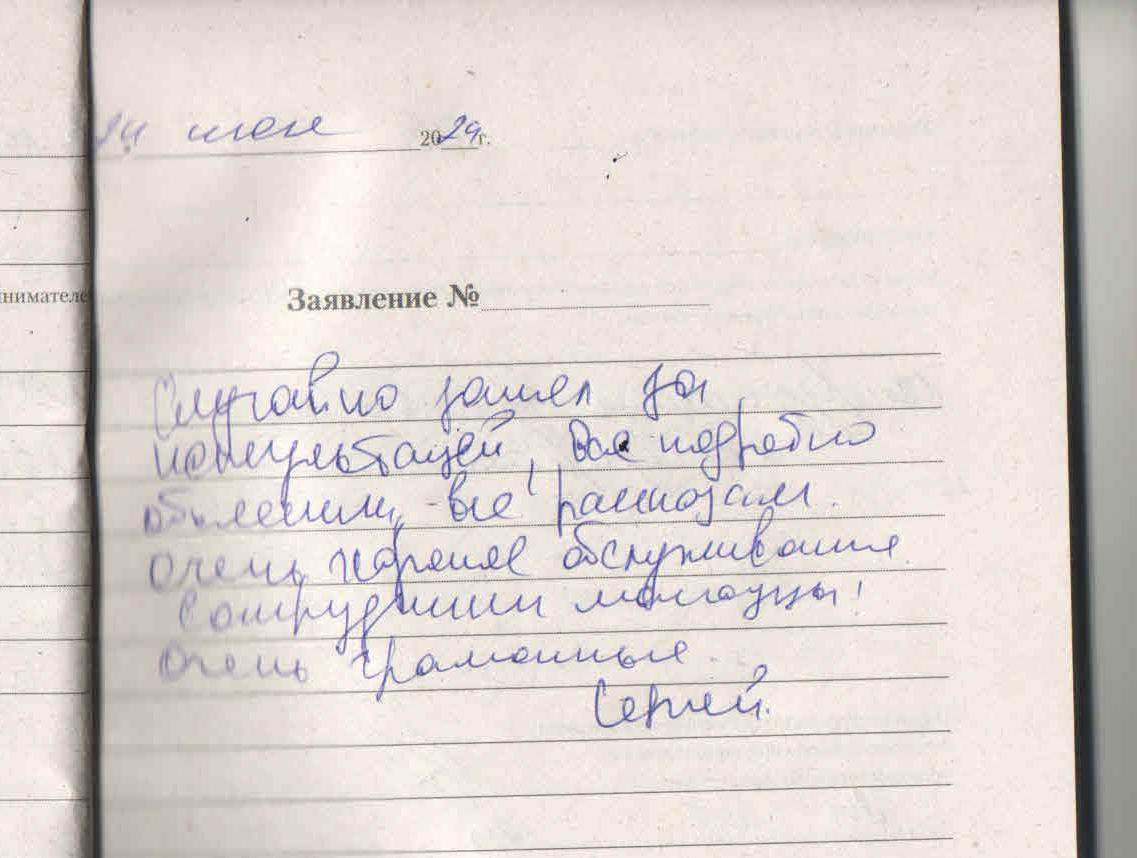 24 июля 2024г.
нимателе
Заявление №
Случайно зашел за
консультацией, Все подробно
объяснили, все рассказали.
Очень хорошее обслуживание
Сотрудники молодцы!
Очень грамотные.
Сергей.